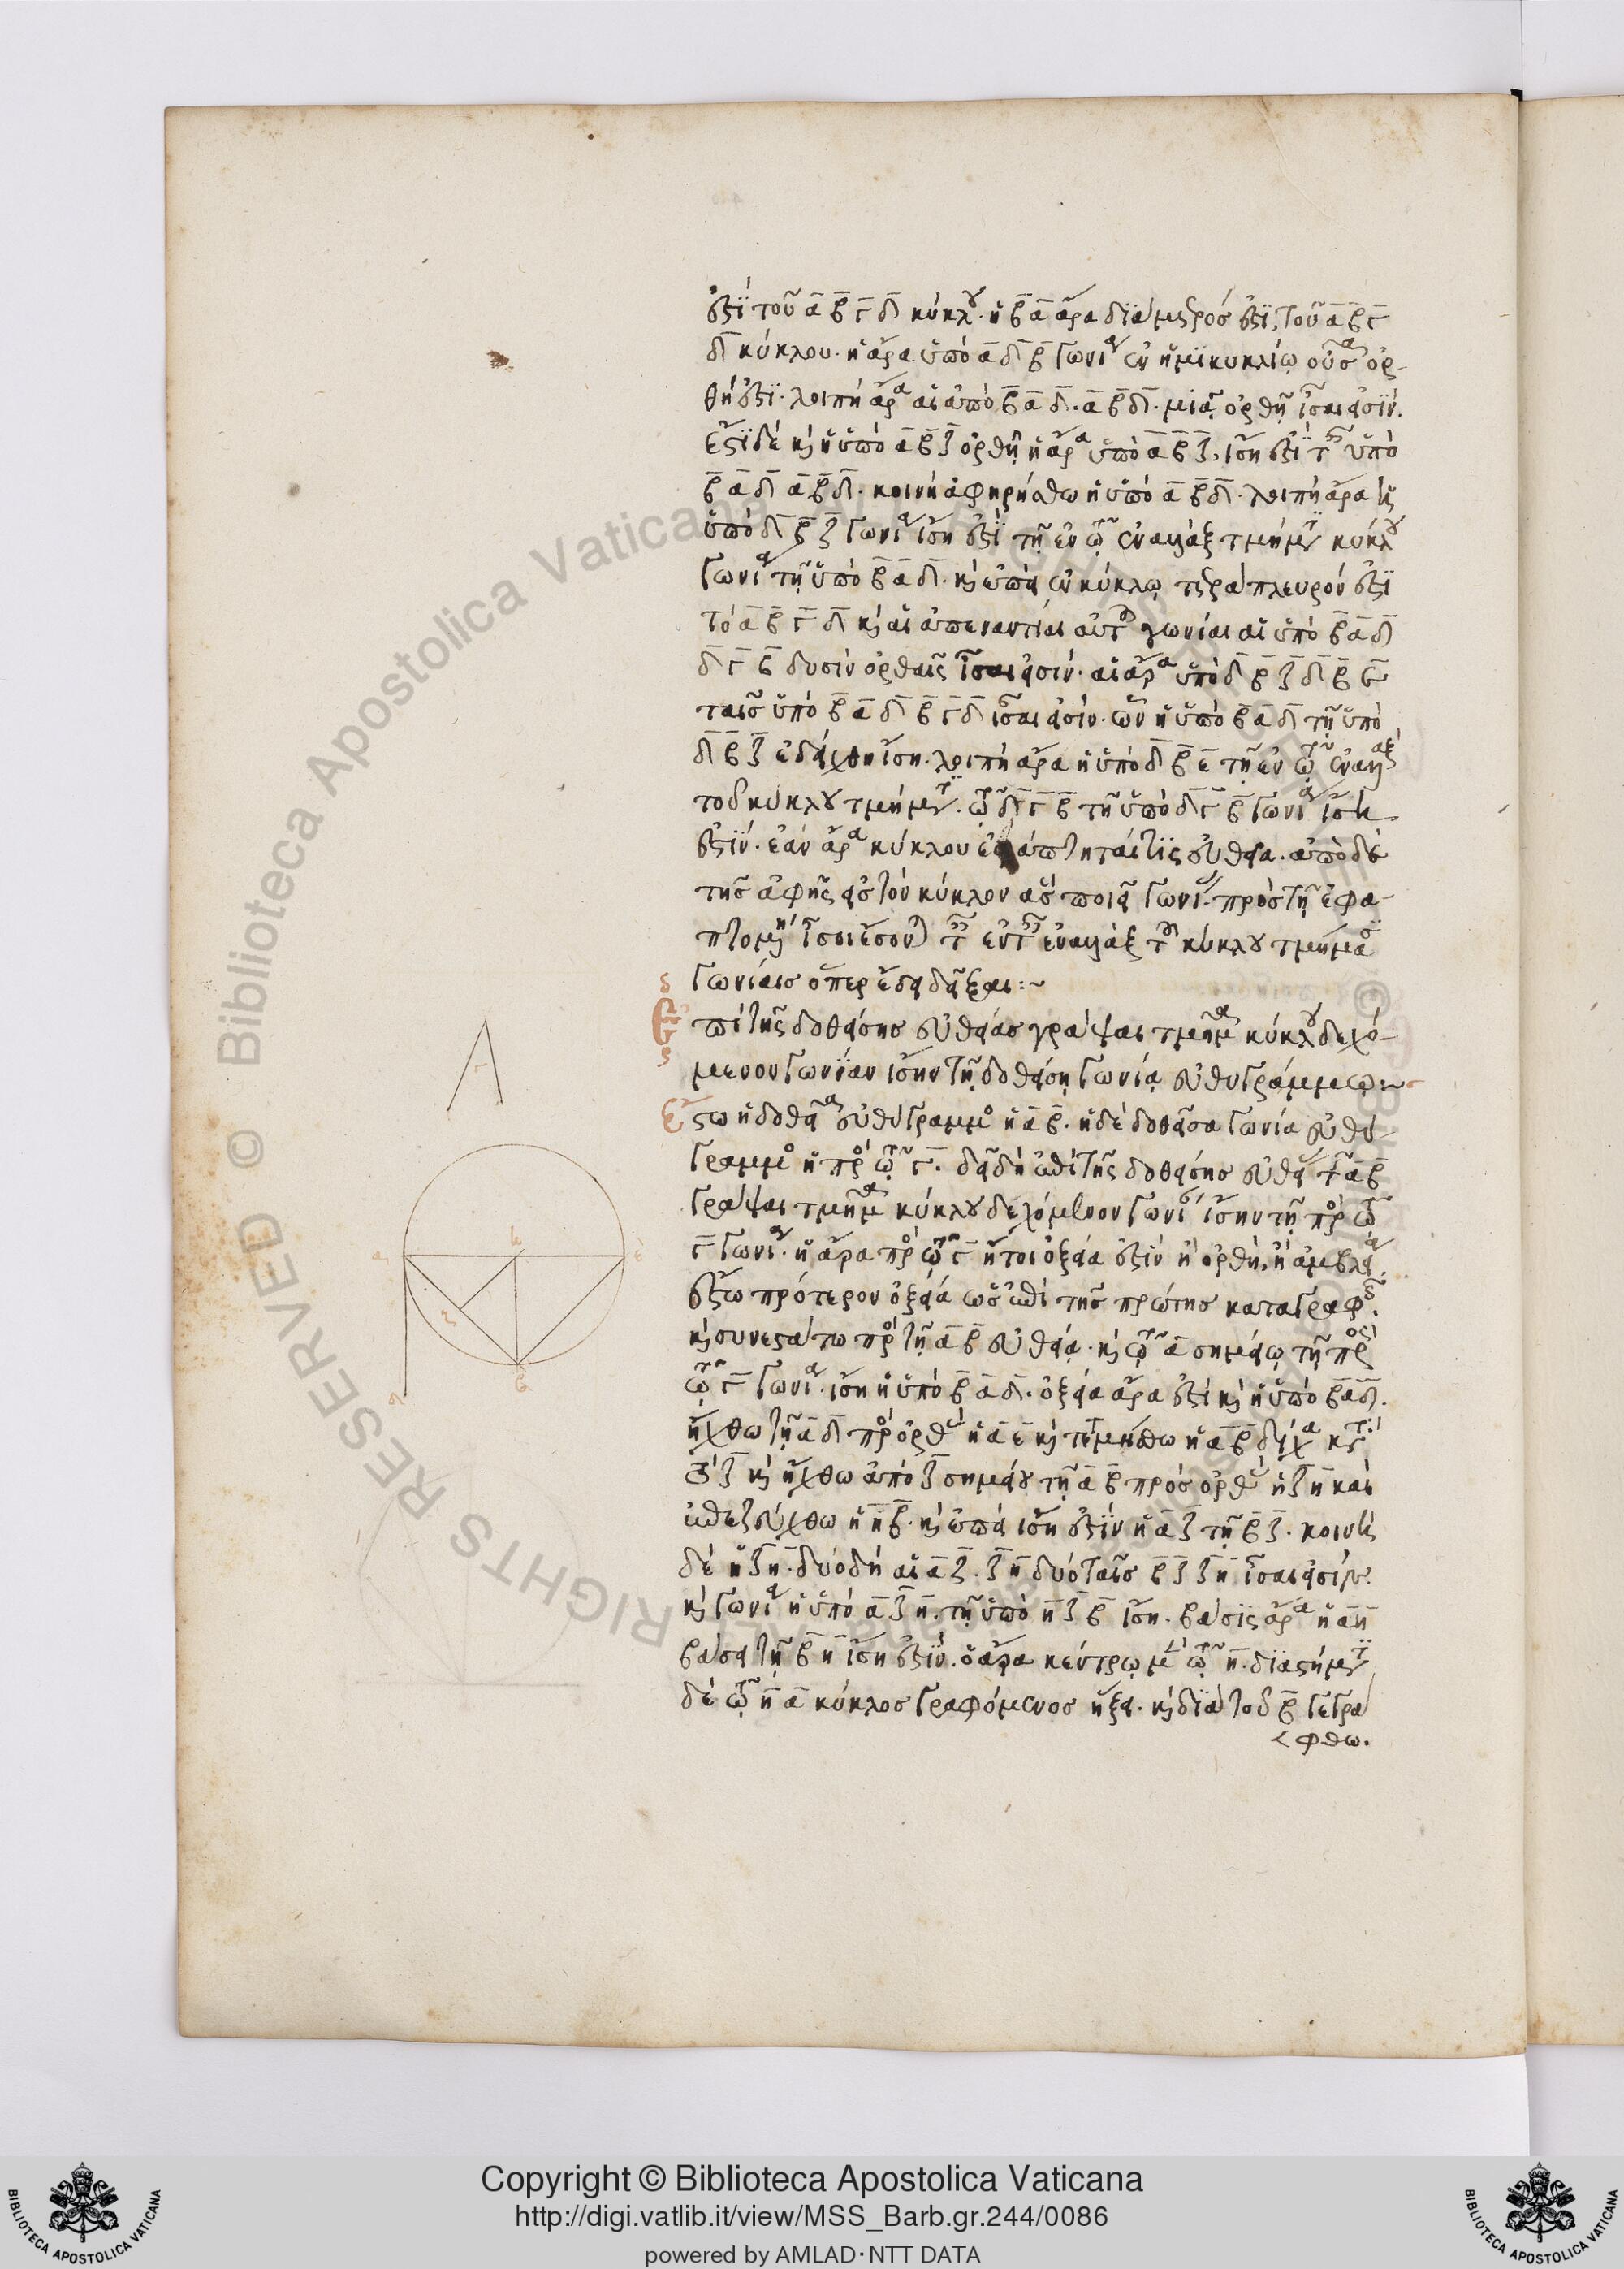 ἐστὶ τοῦ α β γ δ κύκλου· ἡ β α ἄρα διάμετρός ἐστι τοῦ α β γ
δ κύκλου· ἡ ἄρα ὑπὸ α δ β γωνία ἐν ἡμικυκλίῳ οὖσα ὀρ-
θή ἐστι· λοιπὴ ἄρα αἱ ἀπὸ β α δ· α β δ· μιᾷ ὀρθῇ ἴσαι εἰσίν.
ἐστὶ δὲ καὶ ἡ ὑπὸ α β ζ ὀρθὴ ἡ ἄρα ὑπὸ α β ζ, ἴση ἐστὶ ταῖς ὑπὸ
β α δ α β δ· κοινὴ ἀφηρήσθω ἡ ὑπὸ α β δ· λοιπὴ ἄρα ἡ
ὑπὸ δ β ζ γωνία ἴση ἐστὶ τῇ ἐν τῷ ἐναλλὰξ τμήματι κύκλου
γωνίᾳ τῇ ὑπὸ β α δ· καὶ ἐπεὶ ἐν κύκλῳ τετράπλευρόν ἐστι
τὸ α β γ δ καὶ αἱ ἀπεναντίαι αὐτοῦ γωνίαι αἱ ὑπὸ β α δ
δ γ β δυσὶν ὀρθαῖς ἴσαι εἰσίν· αἱ ἄρα ὑπὸ δ β ζ δ β ε
ταῖς ὑπὸ β α δ β γ δ ἴσαι εἰσίν· ὧν ἡ ὑπὸ β α δ τῇ ὑπὸ
δ β ζ ἐδείχθη ἴση· λοιπὴ ἄρα ἡ ὑπὸ δ β ε τῇ ἐν τῷ ἐναλλὰξ
τοῦ κύκλου τμήματι· τῷ δ γ β τῇ ὑπὸ δ γ β γωνίᾳ ἴση
ἐστίν· ἐὰν ἄρα κύκλου ἐφάπτηταί τις εὐθεῖα· ἀπὸ δὲ
τῆς ἁφῆς εἰς τὸν κύκλον ἃς ποιεῖ γωνίας πρὸς τῇ ἐφα-
πτομένῃ ἴσαι ἔσονται ταῖς ἐν τοῖς ἐναλλὰξ τοῦ κύκλου τμήμασι
γωνίαις ὅπερ ἔδει δεῖξαι:~
Ἐπὶ τῆς δοθείσης εὐθείας γράψαι τμῆμα κύκλου δεχό-
μενον γωνίαν ἴσην τῇ δοθείσῃ γωνίᾳ εὐθυγράμμῳ:~
Ἔστω ἡ δοθεῖσα εὐθύγραμμος ἡ α β· ἡ δὲ δοθεῖσα γωνία εὐθύ-
γραμμος ἡ πρὸς τῷ γ· δεῖ δὴ ἐπὶ τῆς δοθείσης εὐθείας τῆς α β
γράψαι τμῆμα κύκλου δεχόμενον γωνίαν ἴσην τῇ πρὸς τῷ
γ γωνίᾳ· ἡ ἄρα πρὸς τῷ γ ἤτοι ὀξεῖα ἐστὶν ἢ ὀρθή, ἢ ἀμβλεῖα.
ἔστω πρότερον ὀξεῖα ὡς ἐπὶ τῆς πρώτης καταγραφῆς.
καὶ συνεστάτω πρὸς τῇ α β εὐθείᾳ· καὶ τῷ α σημείῳ τῇ πρὸς
τῷ γ γωνίᾳ· ἴση ἡ ὑπὸ β α δ· ὀξεῖα ἄρα ἐστὶ καὶ ἡ ὑπὸ β α δ.
ἤχθω τῇ α δ πρὸς ὀρθὰς ἡ α ε καὶ τετμήσθω ἡ α β δίχα κατὰ
τὸ ζ καὶ ἤχθω ἀπὸ ζ σημείου τῇ α β πρὸς ὀρθὰς ἡ ζ η καὶ
ἐπεζεύχθω ἡ η β· καὶ ἐπεὶ ἴση ἐστὶν ἡ α ζ τῇ β ζ· κοινὴ
δὲ ἡ ζ η· δύο δὴ αἱ α ζ· ζ η δυὸ ταῖς β ζ ζ η ἴσαι εἰσίν·
καὶ γωνία ἡ ὑπὸ α ζ η· τῇ ὑπὸ η ζ β ἴση· βάσις ἄρα ἡ α η
βάσει τῇ β η ἴση ἐστίν· ὁ ἄρα κέντρῳ μὲν τῷ η· διαστήματι
δὲ τῷ η α κύκλος γραφόμενος ἥξει· καὶ διὰ τοῦ β γεγρά
φθω.
Copyright © Biblioteca Apostolica Vaticana
http://digi.vatlib.it/view/MSS_Barb.gr.244/0086
powered by AMLAD·NTT DATA
BIBLIOTECA APOSTOLICA VATICANA
BIBLIOTECA APOSTOLICA VATICANA